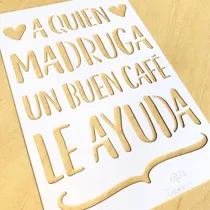 A QUIEN
MADRUGA
UN BUEN CAFÉ
LE AYUDA